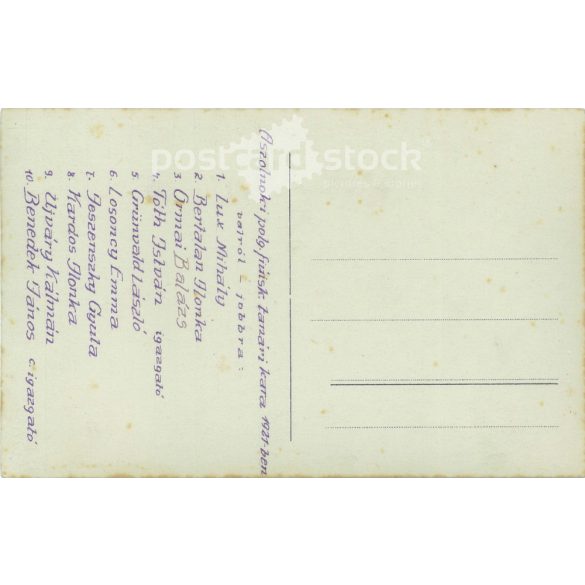 A szolnoki polg. fiúisk. tanári kara 1921-ben
balról – jobbra:
1. Lux Mihály
2 Bertalan Ilonka
3 Ormai Balázs
4. Tóth István igazgató
5 Grünwald László
6 Losoncy Emma
7. Jeszenszky Gyula
8. Kardos Ilonka
9. Ujváry Kálmán
10. Benedek János c. igazgató
postcardstock